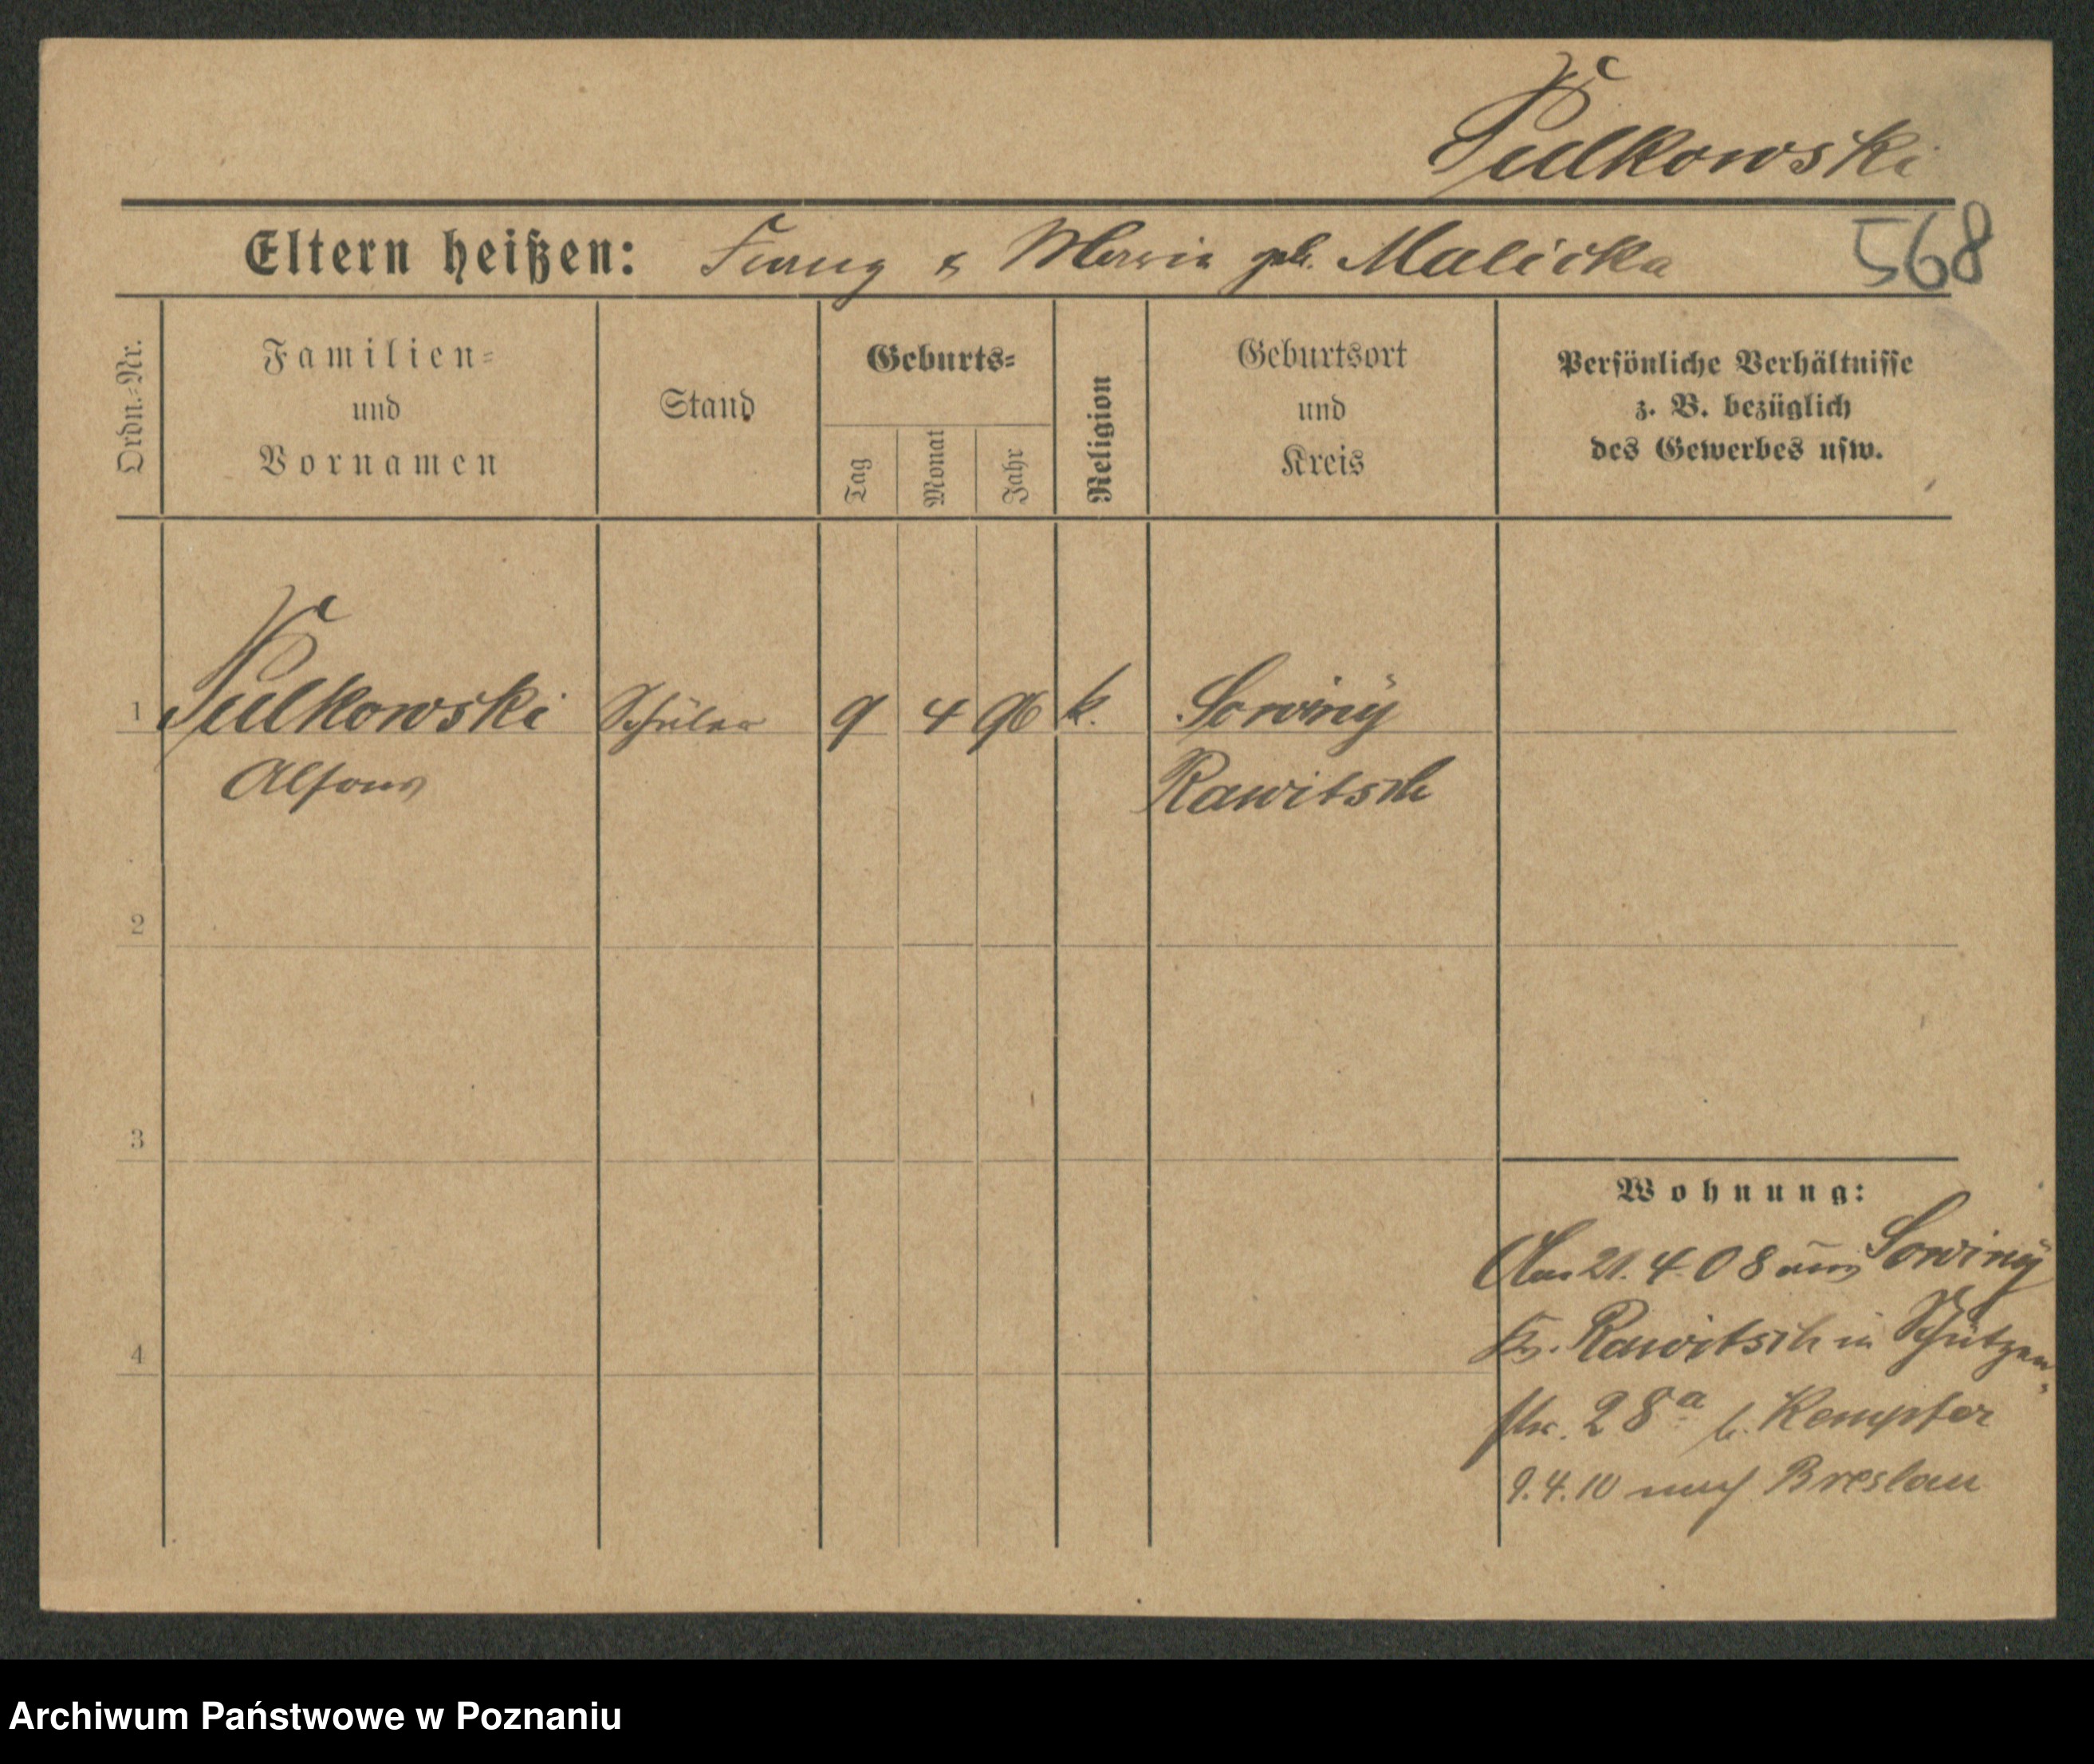 Pulkowski
Eltern heißen: Franz & Maria geb. Malicka
568
Ordn.=Nr.
Familien=
und
Vornamen
Stand
Geburts=
Tag
Monat
Jahr
Religion
Geburtsort
und
Kreis
Persönliche Verhältnisse
z. B. bezüglich
des Gewerbes usw.
1 Pulkowski Schüler 9 4 96 k. Sowiny
Alfons Rawitsch
2
3
Wohnung:
Am 21. 4. 08 aus Sowiny
Kr. Rawitsch in Schützen
4
str. 28a b. Kempfer
9.4.10 nach Breslau
Archiwum Państwowe w Poznaniu